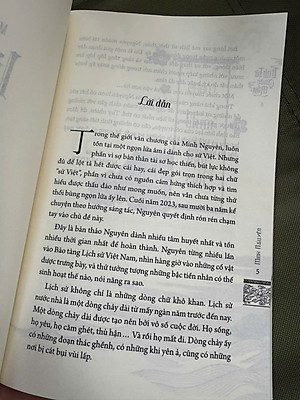 Lời dẫn
Trong thế giới văn chương của Minh Nguyên, luôn
tồn tại một ngọn lửa âm ỉ dành cho sử Việt. Nhưng
phần vì sợ bản thân tài sơ học thiển, bút lực không
đủ để lột tả hết được cái hay, cái đẹp gói trọn trong hai chữ
"sử Việt", phần vì chưa có nguồn cảm hứng thích hợp và tìm
hiểu được thấu đáo như mong muốn, nên vẫn chưa từng thử
thổi bùng ngọn lửa ấy lên. Cuối năm 2023, sau mười ba năm kể
chuyện theo hướng sáng tác, Nguyên quyết định rón rén chạm
tay vào chủ đề này.
Đây là bản thảo Nguyên dành nhiều tâm huyết nhất và tốn
nhiều thời gian nhất để hoàn thành. Nguyên từng nhiều lần
vào Bảo tàng Lịch sử Việt Nam, nhìn hàng giờ vào những cổ vật
được trưng bày, và thử tưởng tượng những bậc tiền nhân có thể
sinh hoạt thế nào, nói năng ra sao.
Lịch sử không chỉ là những dòng chữ khô khan. Lịch sử
nước nhà là một dòng chảy dài từ mấy ngàn năm trước đến nay.
Một dòng chảy được tạo nên bởi vô số cuộc đời. Họ sống,
họ yêu, họ căm ghét, thù hận... Và rồi họ mất đi. Dòng chảy ấy
có những đoạn thác ghềnh, có những khi yên ả, cũng có những
nơi bị cát bụi vùi lấp.
MINH NGUYÊN
5